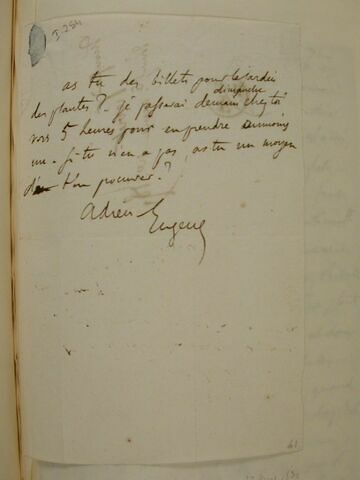 I-284
as tu des billets pour le jardin
dimanche
des plantes ? - je passerai demain chez toi
vers 5 heures pour en prendre au moins
un - si tu n'en a pas, as tu un moyen
d'en pouvoir ?
adieu
Eugene
61